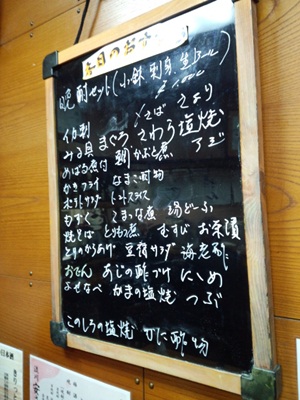 本日のおすすめ
晩酌セット(小鉢 刺身 生ビール)
〆さば さより
イカ刺
みる貝 まぐろ さわら塩焼
めばる煮付 鯛かぶと煮 アジ
かきフライ なまこ酢物
ポテトサラダ トマトスライス
もずく こまつな煮 湯どーふ
焼そば とりもつ煮 むすび お茶漬
とりのからあげ 豆腐サラダ 海老刺
おでん あじの酢づけ
よせなべ かまの塩焼 つぶ
このしろの塩焼 かに酢物
日本酒